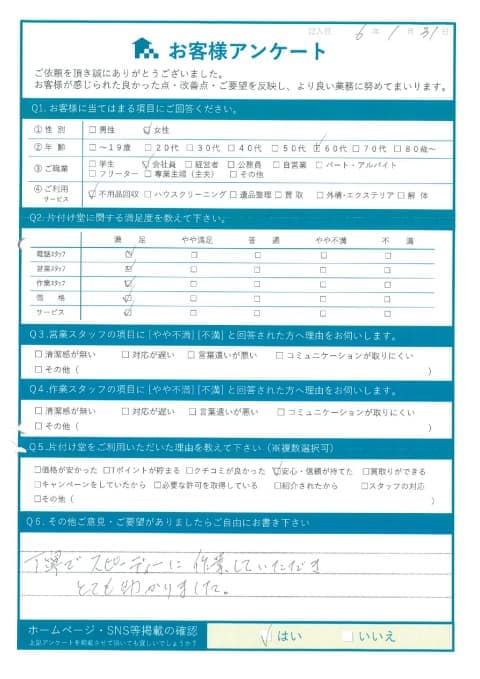 記入日 6 年 1 月 31 日
お客様アンケート
ご依頼を頂き誠にありがとうございました。
お客様が感じられた良かった点・改善点・ご要望を反映し、より良い業務に努めてまいります。
Q1. お客様に当てはまる項目にご回答ください。
①性 別 □男性 ☑女性
②年 齢 □～19歳 □20代 □30代 □40代 □50代 ☑60代 □70代 □80歳～
③ご職業 □学生 ☑会社員 □経営者 □公務員 □自営業 □パート・アルバイト
□フリーター □専業主婦（主夫） □その他
④ご利用サービス ☑不用品回収 □ハウスクリーニング □遺品整理 □買取 □外構・エクステリア □解 体
Q2. 片付け堂に関する満足度を教えて下さい。
満 足 やや満足 普 通 やや不満 不 満
電話スタッフ ☑ □ □ □ □
営業スタッフ ☑ □ □ □ □
作業スタッフ ☑ □ □ □ □
価 格 ☑ □ □ □ □
サービス ☑ □ □ □ □
Q3. 営業スタッフの項目に[やや不満][不満]と回答された方へ理由をお伺いします。
□清潔感が無い □対応が遅い □言葉遣いが悪い □コミュニケーションが取りにくい
□その他（ ）
Q4. 作業スタッフの項目に[やや不満][不満]と回答された方へ理由をお伺いします。
□清潔感が無い □対応が遅い □言葉遣いが悪い □コミュニケーションが取りにくい
□その他（ ）
Q5. 片付け堂をご利用いただいた理由を教えて下さい（※複数選択可）
□価格が安かった □Tポイントが貯まる □クチコミが良かった ☑安心・信頼が持てた □買取りができる
□キャンペーンをしていたから □必要な許可を取得している □紹介されたから □スタッフの対応
□その他（ ）
Q6. その他ご意見・ご要望がありましたらご自由にお書き下さい
丁寧でスピーディーに作業していただき
とても助かりました。
ホームページ・SNS等掲載の確認
上記アンケートを掲載させて頂いても宜しいでしょうか？
☑はい □いいえ